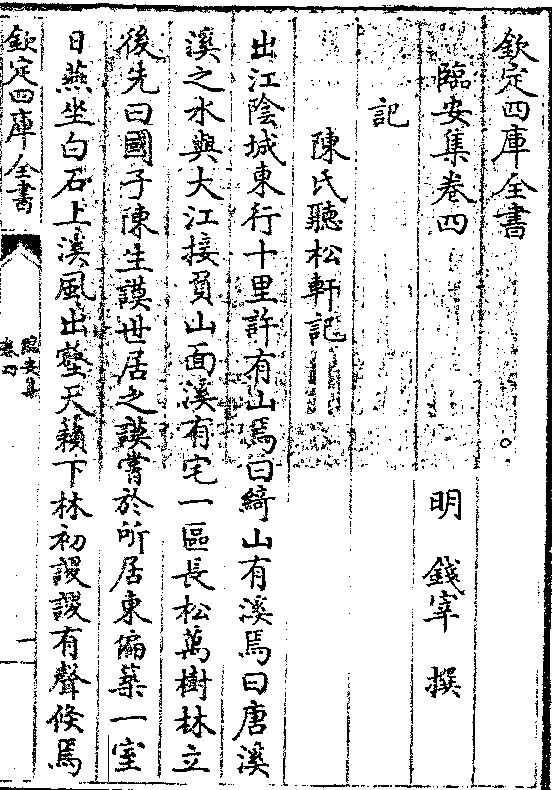 欽定四庫全書
臨安集卷四
明 錢宰 撰
記
陳氏聽松軒記
出江隂城東行十里許有山焉曰綺山有溪焉曰唐溪
溪之水與大江接負山面溪有宅一區長松萬樹林立
後先曰國子陳生謨世居之謨嘗於所居東偏築一室
日燕坐白石上溪風出壑天籟下林初謖謖有聲倏焉
欽定四庫全書
臨安集
卷四
一